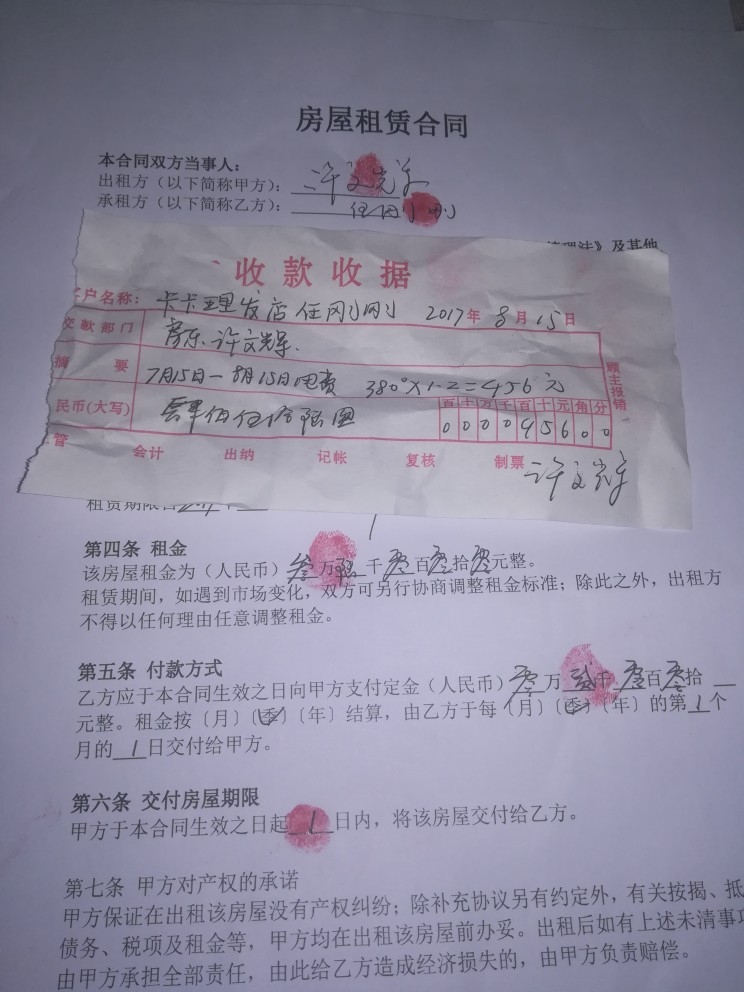 房屋租赁合同
本合同双方当事人：
出租方（以下简称甲方）：许文光军
承租方（以下简称乙方）：任刚刚
理法》及其他
收款收据
户名称：卡卡理发店任刚刚 2017年8月15日
交款部门 房东、许文光军.
摘要 7月15日—8月15日电费 380°×1.2=456元
民币(大写) 零肆佰伍拾陆圆 百十万千百十元角分
000045600
管 会计 出纳 记帐 复核 制票 许文光军
顾主报销
租赁期限自
第四条 租金
该房屋租金为（人民币）叁万陆千零百零拾零元整。
租赁期间，如遇到市场变化，双方可另行协商调整租金标准；除此之外，出租方
不得以任何理由任意调整租金。
第五条 付款方式
乙方应于本合同生效之日向甲方支付定金（人民币）零万贰千零百零拾
元整。租金按〔月〕〔季〕〔年〕结算，由乙方于每〔月〕〔季〕〔年〕的第1个
月的1日交付给甲方。
第六条 交付房屋期限
甲方于本合同生效之日起1日内，将该房屋交付给乙方。
第七条 甲方对产权的承诺
甲方保证在出租该房屋没有产权纠纷；除补充协议另有约定外，有关按揭、抵
债务、税项及租金等，甲方均在出租该房屋前办妥。出租后如有上述未清事项
由甲方承担全部责任，由此给乙方造成经济损失的，由甲方负责赔偿。